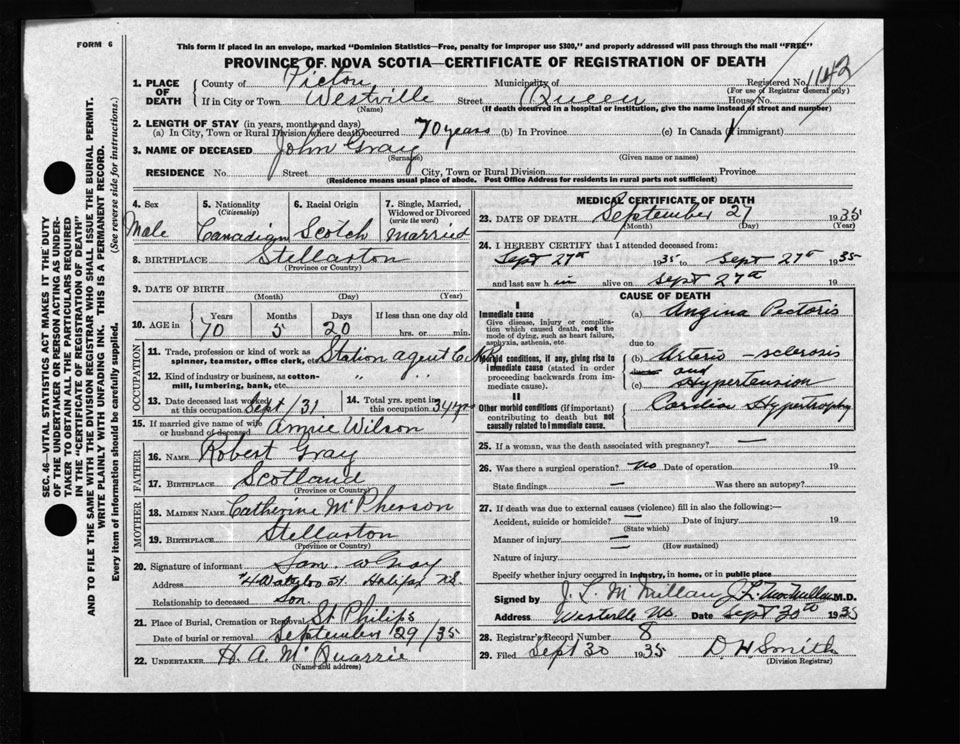 FORM 6
This form if placed in an envelope, marked "Dominion Statistics—Free, penalty for improper use $300," and properly addressed will pass through the mail "FREE"
PROVINCE OF NOVA SCOTIA—CERTIFICATE OF REGISTRATION OF DEATH
1. PLACE OF DEATH
County of Pictou Municipality of Registered No. 1142
(For use of Registrar General only)
If in City or Town Westville Street Queen House No.
(Name) (If death occurred in a hospital or institution, give the name instead of street and number)
2. LENGTH OF STAY (in years, months and days)
(a) In City, Town or Rural Division where death occurred 70 years (b) In Province (c) In Canada (if immigrant)
3. NAME OF DECEASED John Gray
(Surname) (Given name or names)
RESIDENCE No. Street City, Town or Rural Division Province
(Residence means usual place of abode. Post Office Address for residents in rural parts not sufficient)
4. Sex 5. Nationality (Citizenship) 6. Racial Origin 7. Single, Married, Widowed or Divorced (write the word)
Male Canadian Scotch Married
8. BIRTHPLACE Stellarton
(Province or Country)
9. DATE OF BIRTH
(Month) (Day) (Year)
10. AGE in Years Months Days If less than one day old
70 5 20 hrs. or min.
OCCUPATION
11. Trade, profession or kind of work as spinner, teamster, office clerk, etc. Station agent
12. Kind of industry or business, as cotton-mill, lumbering, bank, etc. " "
13. Date deceased last worked at this occupation Sept/31 14. Total yrs. spent in this occupation 34 yrs
15. If married give name of wife or husband of deceased Annie Wilson
FATHER
16. NAME Robert Gray
17. BIRTHPLACE Scotland
(Province or Country)
MOTHER
18. MAIDEN NAME Catherine McPherson
19. BIRTHPLACE Stellarton
(Province or Country)
20. Signature of informant
Address Halifax N.S.
Relationship to deceased Son
21. Place of Burial, Cremation or Removal St Philips
Date of burial or removal September 29/35
22. UNDERTAKER H. A. McQuarrie
(Name and address)
MEDICAL CERTIFICATE OF DEATH
23. DATE OF DEATH September 27 1935
(Month) (Day) (Year)
24. I HEREBY CERTIFY that I attended deceased from:
Sept 27th 1935 to Sept 27th 1935
and last saw h im alive on Sept 27th 19
CAUSE OF DEATH
I
Immediate cause
Give disease, injury or complication which caused death, not the mode of dying, such as heart failure, asphyxia, asthenia, etc.
(a) Angina Pectoris
due to
Morbid conditions, if any, giving rise to immediate cause (stated in order proceeding backwards from immediate cause).
(b) Arterio-sclerosis
and
(c) Hypertension
II
Other morbid conditions (if important) contributing to death but not causally related to immediate cause.
Cardiac Hypertrophy
25. If a woman, was the death associated with pregnancy? —
26. Was there a surgical operation? no Date of operation 19
State findings — Was there an autopsy?
27. If death was due to external causes (violence) fill in also the following:—
Accident, suicide or homicide? — Date of injury 19
(State which)
Manner of injury —
(How sustained)
Nature of injury —
Specify whether injury occurred in industry, in home, or in public place
Signed by J. L. McMillan M.D.
Address Westville NS Date Sept 30th 1935
28. Registrar's Record Number 8
29. Filed Sept 30 1935 D H Smith
(Division Registrar)
SEC. 46—VITAL STATISTICS ACT MAKES IT THE DUTY OF THE UNDERTAKER OR PERSON ACTING AS UNDERTAKER TO OBTAIN ALL THE PARTICULARS REQUIRED IN THE "CERTIFICATE OF REGISTRATION OF DEATH" AND TO FILE THE SAME WITH THE DIVISION REGISTRAR WHO SHALL ISSUE THE BURIAL PERMIT.
WRITE PLAINLY WITH UNFADING INK. THIS IS A PERMANENT RECORD.
Every item of information should be carefully supplied. (See reverse side for instructions.)